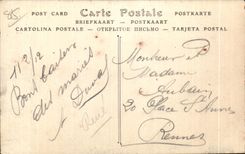 POST CARD Carte Postale POSTKARTE
BRIEFKAART POSTKAART
CARTOLINA POSTALE ОТКРЫТОЕ ПИСЬМО TARJETA POSTAL
Bons baisers
des marais
Monsieur et
Madame
20 Place Ste Anne
Rennes